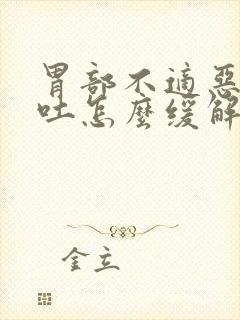 胃部不適惡
吐怎麼緩解
金立